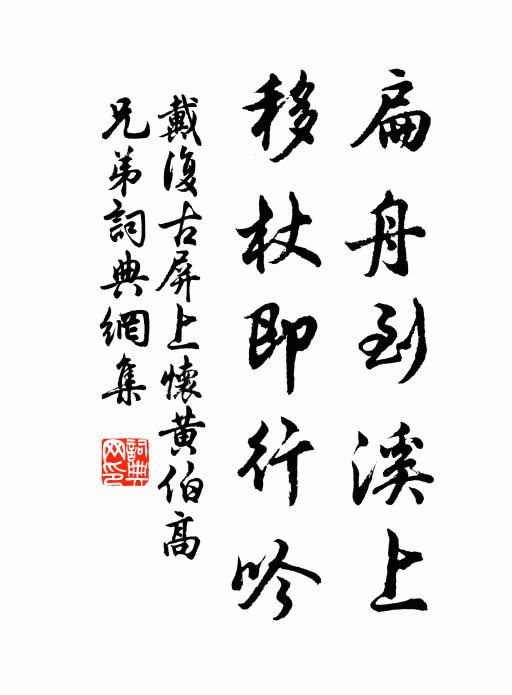 扁舟到溪上
移杖即行吟
戴復古屏上懷黄伯高
兄弟詞典網集
詞典網印